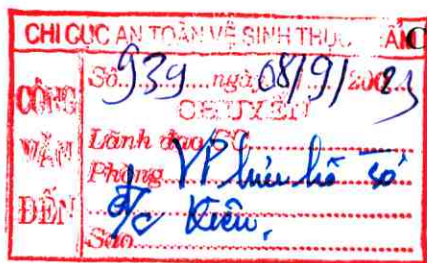 CHI CỤC AN TOÀN VỆ SINH THỰC ẨM
CÔNG VĂN ĐẾN
Số 939 ngày 08/9/2023
CHUYỂN
Lãnh đạo CC
Phòng VP lưu hồ sơ
đ/c Kiều.
Sao